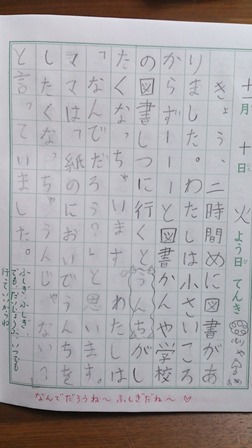 十一月十日火よう日てんき
きょう、二時間めに図書があ
りました。わたしは小さいころ
からずーーっと図書かんや学校
の図書しつに行くとうんちがし
たくなっちゃいます。わたしは
「なんでだろう?」と思います。
ママは「紙のにおいでうんちを
したくなっちゃうんじゃない?」
と言っていました。
ふしぎふしぎ。
行っていいからね
なんでだろうね〜ふしぎだね〜♡